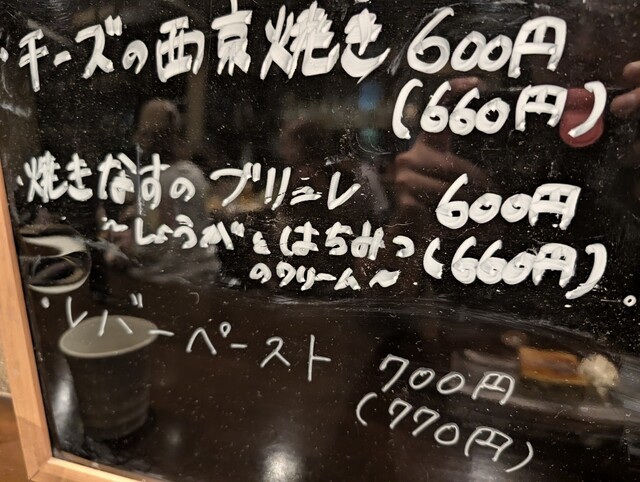 ・チーズの西京焼き 600円
(660円)
・焼きなすのブリュレ 600円
～しょうがとはちみつ (660円)
のクリーム～
・レバーペースト 700円
(770円)